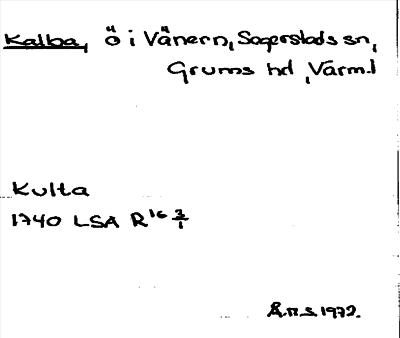 Kalba, ö i Vänern, Segerstads sn,
Grums hd, Värml
Kulta
1740 LSA R16 3/1
Å.n.S. 1972.